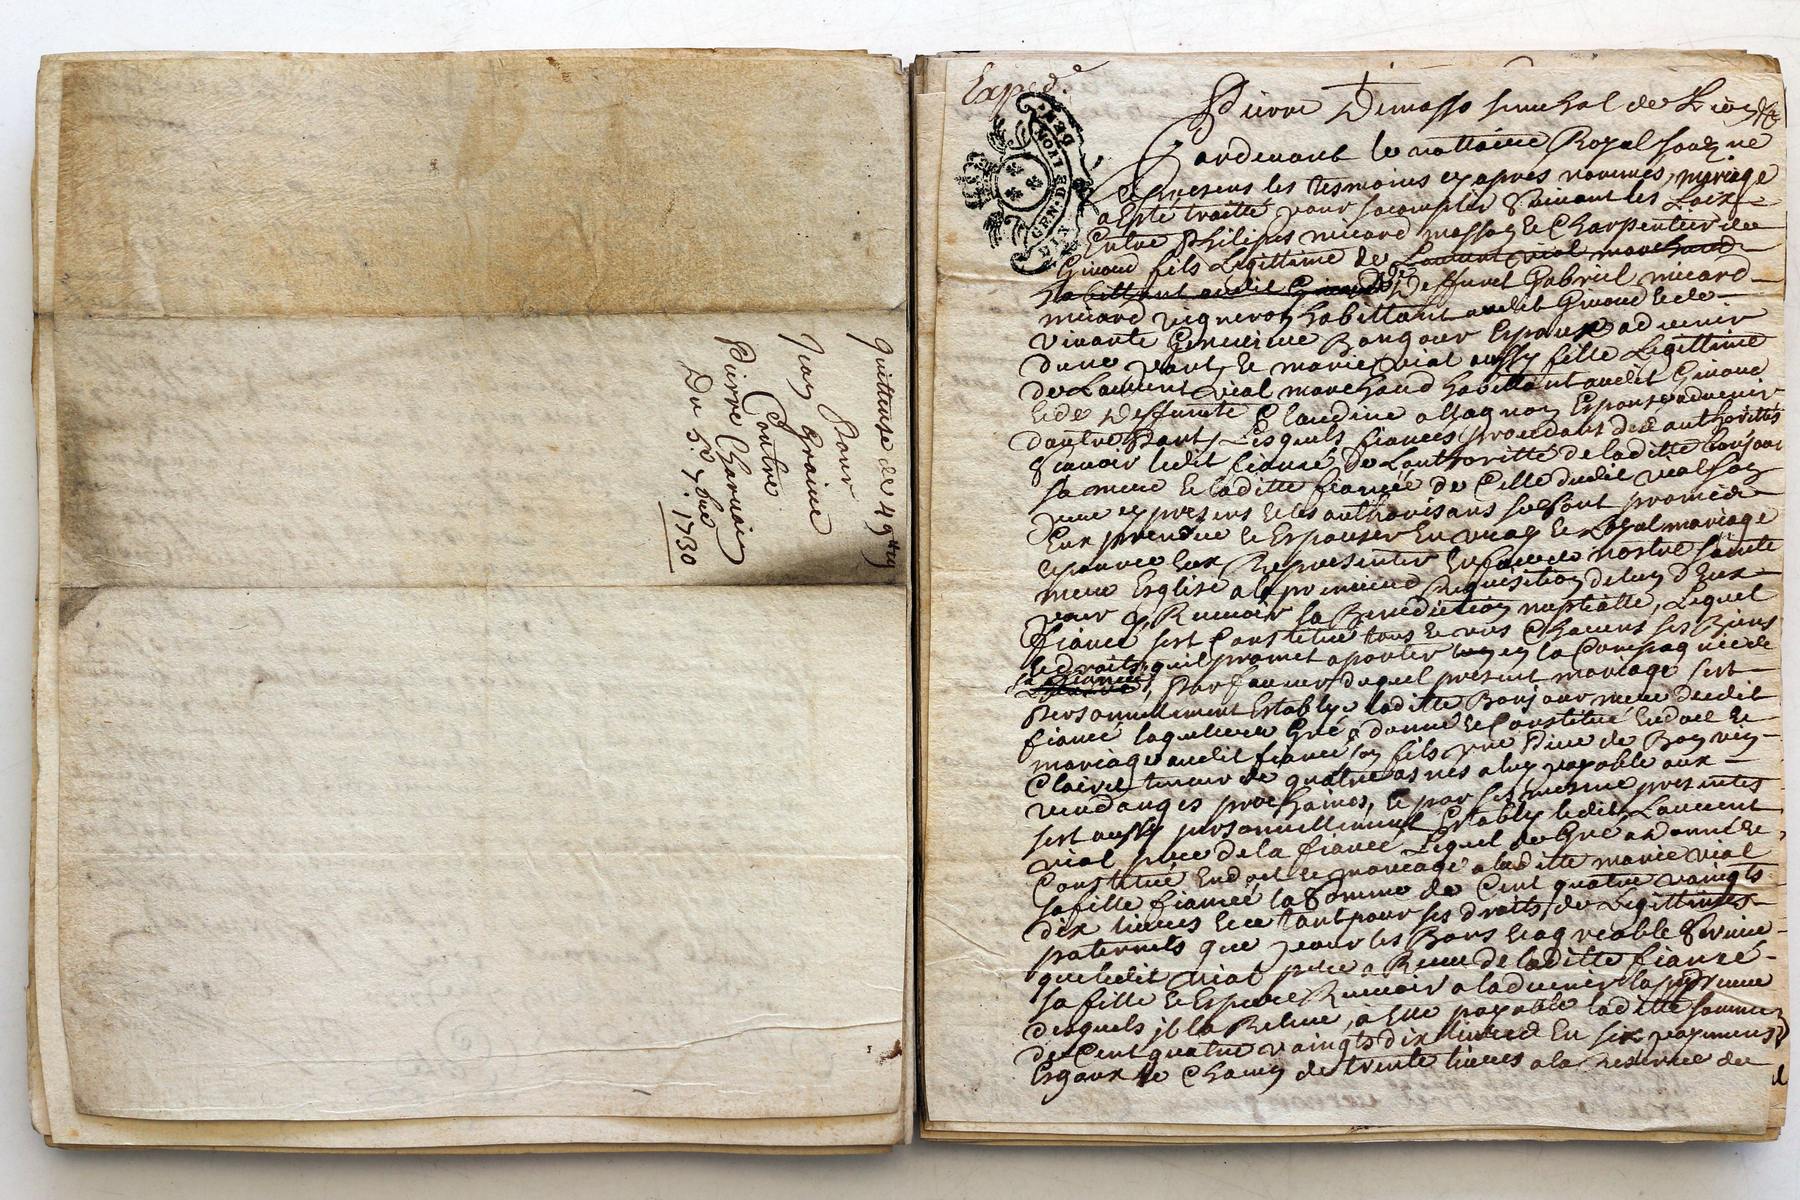 quittense de 49 ##
Pour
Jean Graine
Contre
Pierre
Du 5e 7bre 1730
Exped.e
GEN. DE LYON
Pierre
Pardevant le nottaire Royal soubz ne
presens les tesmoins cy apres nommés, mariage
a esté traitté pour sacomplir suivant les Loix
Entre Philipes micard masson et Charpentier de
fils Legittime de Laurent vial marchand
habittant audit deffunct Gabriel micard
micard vigneron habittant audit et de
vivante Espoux advenir
dune part, et marie vial aussy fille Legittime
de Laurent vial marchand habittant audit
et de deffunte Claudine Espouse advenir
dautre Part, Lesquels fiancés procedans des authorittés
scavoir ledit fiancé de Lauthoritté de laditte bonjour
sa mere et laditte fiancée de Celle dudit vial son
pere cy presens et les authorisans se sont promis
Eux prendre et Espouser En vray et Loyal mariage
Eux Representer En face de nostre sainte
mere Esglise a la premiere Requisition de lun dEux
pour y Recevoir la Benediction nuptialle, Lequel
fiancé sest Constitué tous et uns Chacuns ses Biens
et droits quil promet aporter en la Compagnie de
la fiancée, Par faveur duquel present mariage sest
Personnellement Establye laditte Bonjour mere dudit
fiancé laquelle de Gré a donné et Constitué En dot et
mariage audit fiancé son fils une Piece de Bon vin
Clairet teneur de quatre asnés a luy payable aux
vendanges prochaines, et par ses mesme presentes
sest aussy personnellement Estably ledit Laurent
vial pere de la fiancée Lequel de Gré a donné et
Constitué En dot et mariage a laditte marie vial
sa fille fiancée la Somme de Cent quatre vaingts
dix livres et ce tant pour ses droits de Legittimes
paternels que pour les Bons et agreable Service
que ledit vial pere a Receu de laditte fiancée
sa fille et Espere Recevoir a ladvenir la preuve
desquels il la Releve, a Elle payable laditte somme
de Cent quatre vaingts dix livres En six payemens
Esgaux de Chacun de trente livres a la reserve du